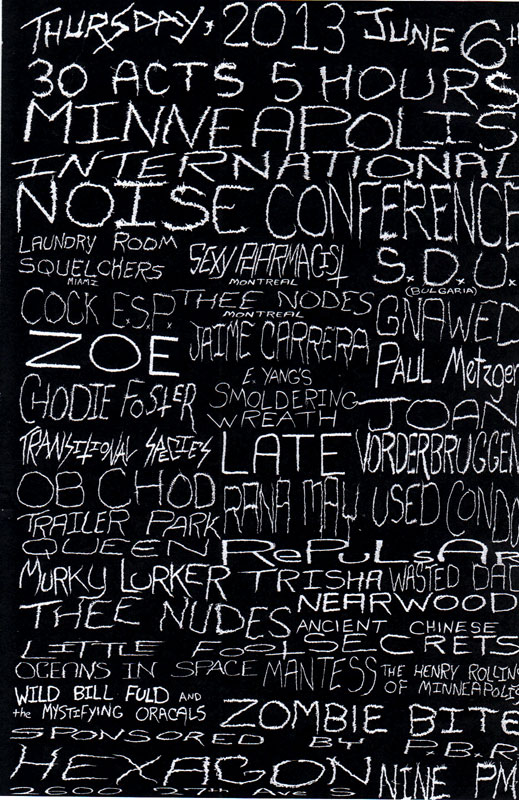 THURSDAY, 2013 JUNE 6th
30 ACTS 5 HOURS
MINNEAPOLIS
INTERNATIONAL
NOISE CONFERENCE
LAUNDRY ROOM
SQUELCHERS
MIAMI
SEXY PHARMACIST
MONTREAL
S.D.U.
(BULGARIA)
COCK E.S.P.
THEE NODES
MONTREAL
GNAWED
ZOE
JAIME CARRERA
PAUL Metzger
CHODIE FOSTER
E. YANG'S
SMOLDERING
WREATH
JOAN
VORDERBRUGGEN
TRANSITIONAL SPECIES
LATE
OB CHOD
RANA MAY
USED CONDO
TRAILER PARK
QUEEN
RePuLsAR
MURKY LURKER
TRISHA
WASTED DAD
NEARWOOD
THEE NUDES
ANCIENT CHINESE
SECRETS
LITTLE FOOLS
OCEANS IN SPACE
MANTESS
THE HENRY ROLLINS
OF MINNEAPOLIS
WILD BILL FULD AND
the MYSTIFYING ORACALS
ZOMBIE BITE
SPONSORED BY P.B.R
HEXAGON NINE PM
2600 27th Ave S